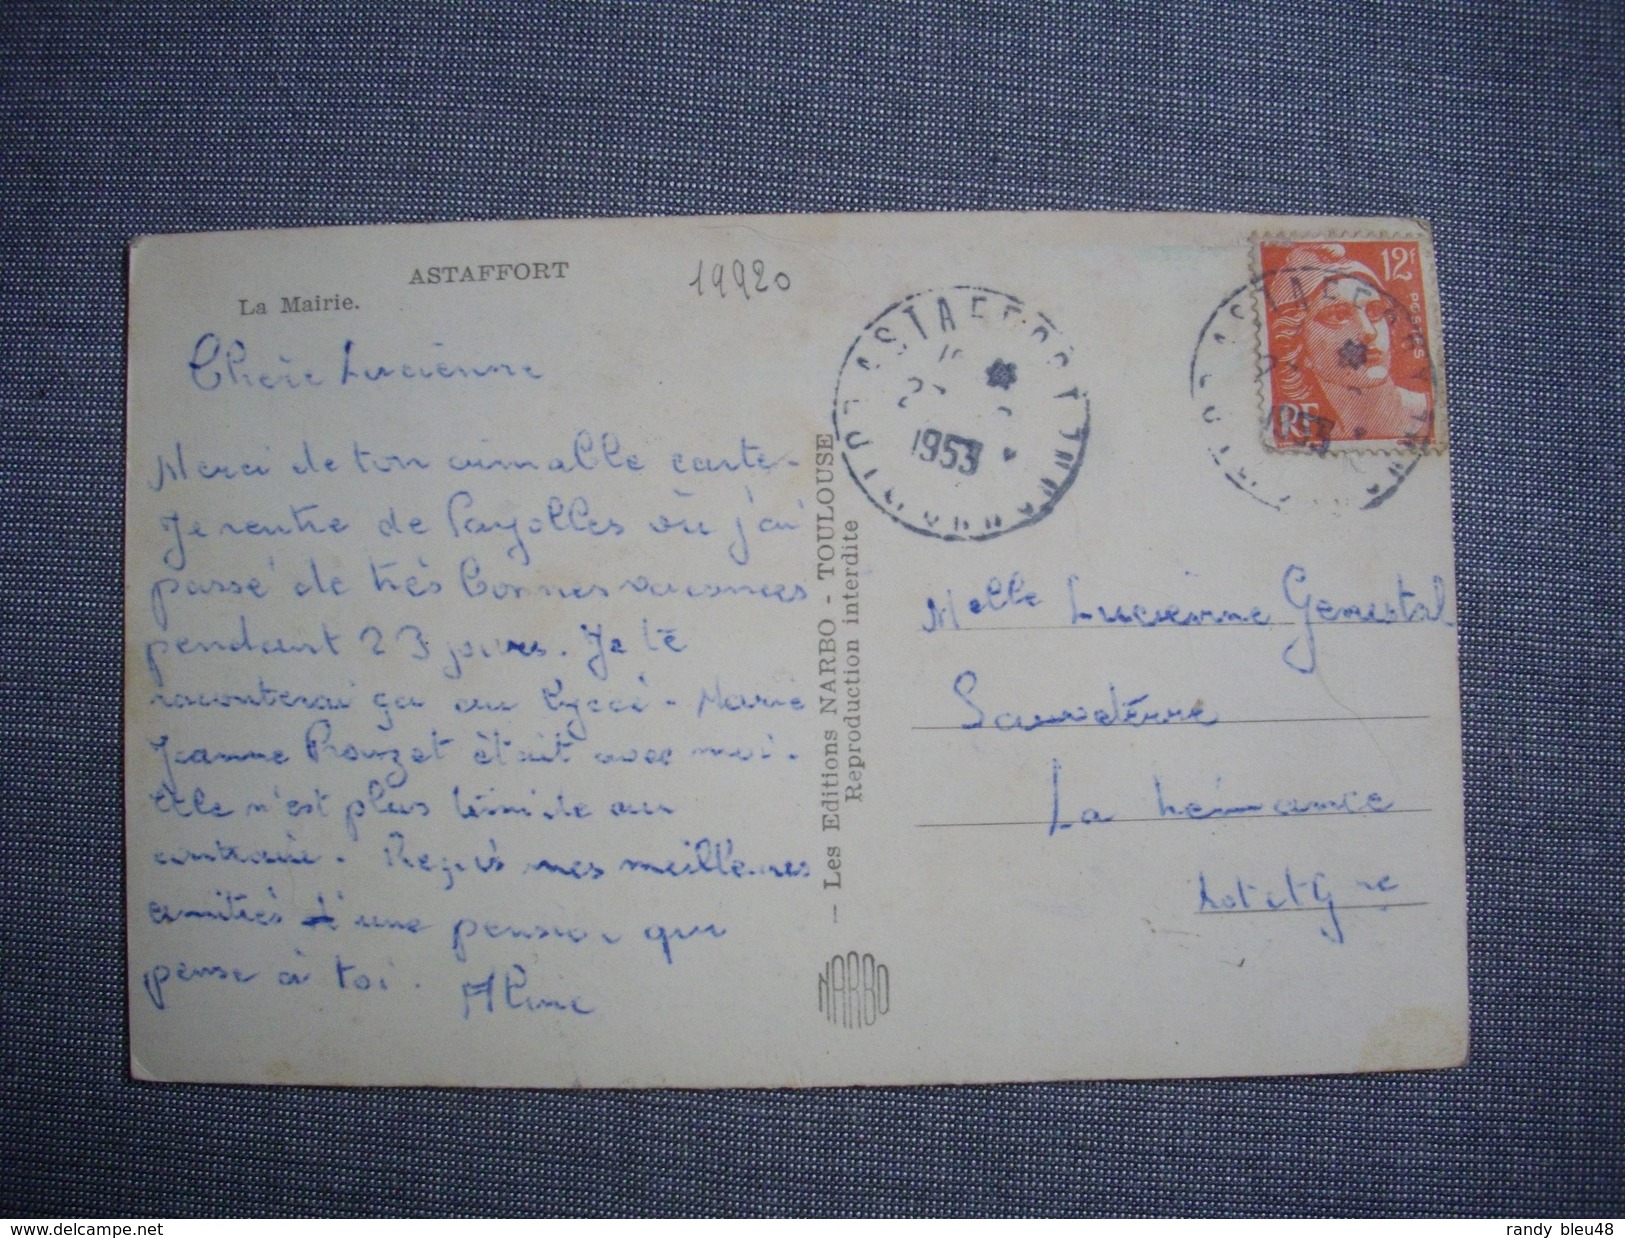 ASTAFFORT
La Mairie.
19920
Chère Lucienne
Merci de ton aimable carte -
Je rentre de Payolles où j'ai
passé de très bonnes vacances
pendant 23 jours. Je te
raconterai ça au lycée - Marie
Jeanne Rouzet était avec moi.
Elle n'est plus timide au
contraire. Reçois mes meilleures
amitiés d'une pension qui
pense à toi. Aline
— Les Editions NARBO - TOULOUSE
Reproduction interdite
NARBO
ASTAFFORT
1953
12F
POSTES
RF
ASTAFFORT
1953
Melle Lucienne Genestal
Sauveterre
La Lémance
Lot et Gne
delcampe.net
randy_bleu48